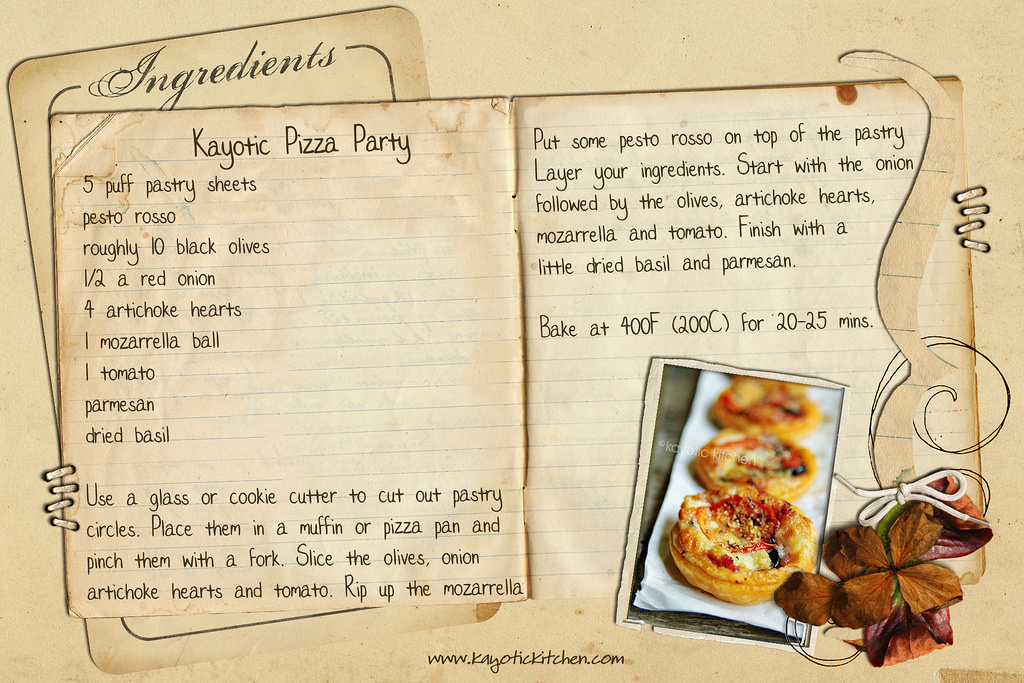 Ingredients
Kayotic Pizza Party
5 puff pastry sheets
pesto rosso
roughly 10 black olives
1/2 a red onion
4 artichoke hearts
1 mozarrella ball
1 tomato
parmesan
dried basil
Use a glass or cookie cutter to cut out pastry
circles. Place them in a muffin or pizza pan and
pinch them with a fork. Slice the olives, onion
artichoke hearts and tomato. Rip up the mozarrella
Put some pesto rosso on top of the pastry
Layer your ingredients. Start with the onion
followed by the olives, artichoke hearts,
mozarrella and tomato. Finish with a
little dried basil and parmesan.
Bake at 400F (200C) for 20-25 mins.
©kayotic kitchen
www.kayotickitchen.com